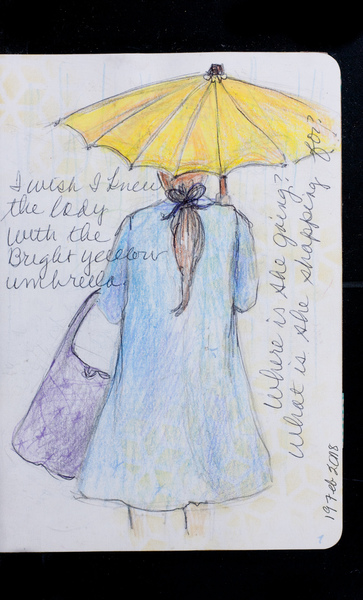 I wish I knew
the lady
with the
Bright yellow
umbrella
Where is she going?
What is she shopping for?
19 Feb 2018